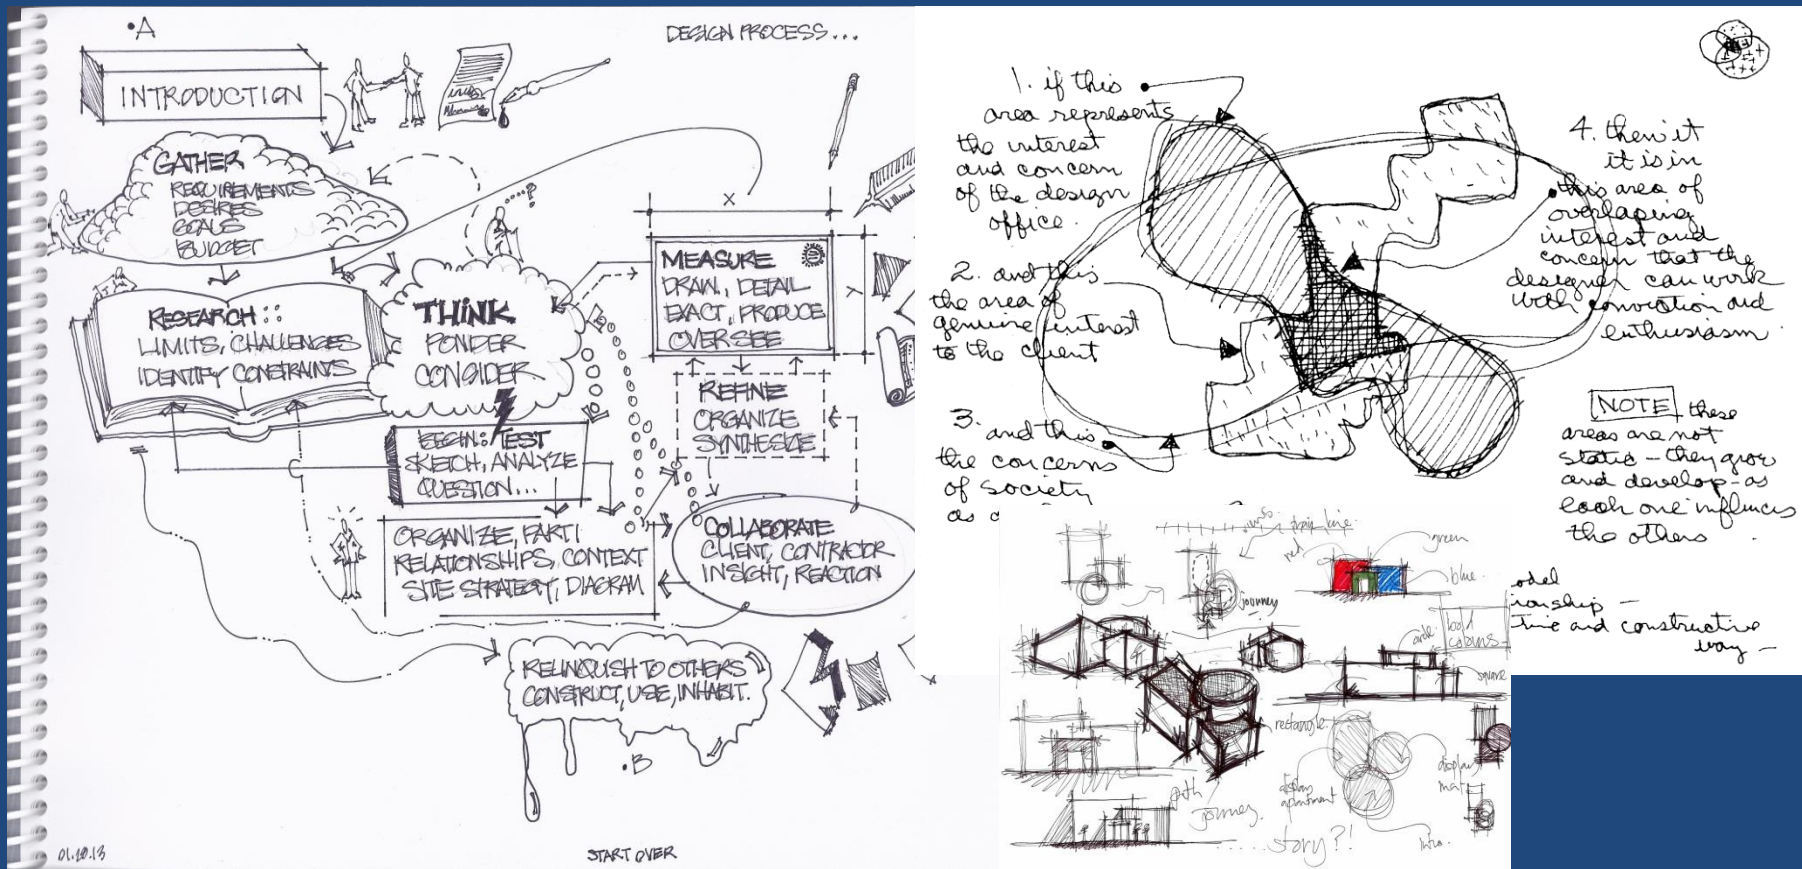 •A
DESIGN PROCESS...
INTRODUCTION
GATHER
REQUIREMENTS
DESIRES
GOALS
BUDGET
...?
RESEARCH::
LIMITS, CHALLENGES
IDENTIFY CONSTRAINTS
THINK
PONDER
CONSIDER
X
MEASURE
DRAW, DETAIL
EXACT, PRODUCE
OVERSEE
REFINE
ORGANIZE
SYNTHESIZE
BEGIN: TEST
SKETCH, ANALYZE
QUESTION...
ORGANIZE, PARTI
RELATIONSHIPS, CONTEXT
SITE STRATEGY, DIAGRAM
COLLABORATE
CLIENT, CONTRACTOR
INSIGHT, REACTION
RELINQUISH TO OTHERS
CONSTRUCT, USE, INHABIT.
•B
01.10.13
START OVER
1. if this
area represents
the interest
and concern
of the design
office.
2. and this
the area of
genuine interest
to the client
3. and this
the concerns
of society
as a
4. then it
it is in
this area of
overlaping
interest and
concern that the
designer can work
with conviction and
enthusiasm
NOTE these
areas are not
static - they grow
and develop - as
each one influences
the others
odel
ionship -
tive and constructive
way -
train line.
red
green
blue.
journey
bold
colours
circle
square
rectangle
display
apartment
path
journey
..... story?!
intro.